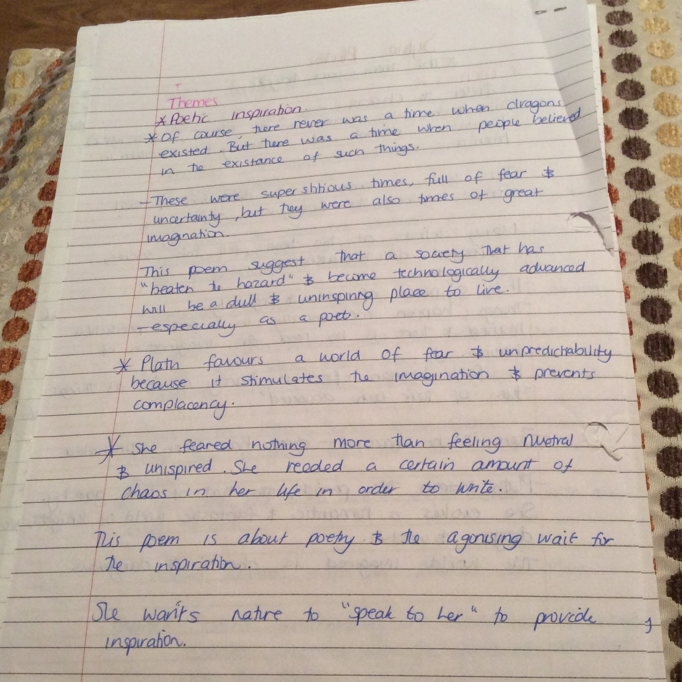 Themes
* Poetic inspiration.
* Of course, there never was a time when dragons
existed. But there was a time when people believed
in the existance of such things.
- These were superstitious times, full of fear &
uncertainty, but they were also times of great
imagnation.
This poem suggest that a society that has
"beaten the hazard" & become technologically advanced
will be a dull & uninspiring place to live.
- especially as a poet.
* Plath favours a world of fear & unpredictability
because it stimulates the imagination & prevents
complacency.
* She feared nothing more than feeling nuetral
& unispired. She needed a certain amount of
chaos in her life in order to write.
This poem is about poetry & the agonising wait for
the inspiration.
She wants nature to "speak to her" to provide
inspiration.